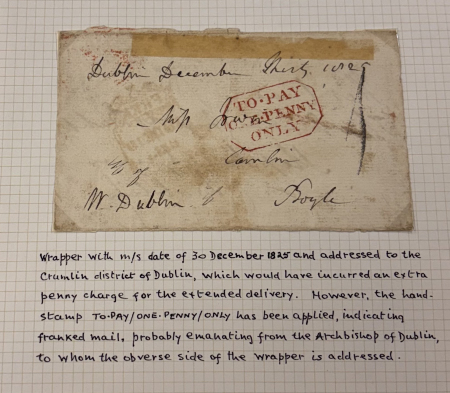 Dublin December Thirty 1825
TO·PAY
ONE·PENNY
ONLY
Miss
W. Dublin
Boyle
Wrapper with m/s date of 30 December 1825 and addressed to the
Crumlin district of Dublin, which would have incurred an extra
penny charge for the extended delivery. However, the hand-
stamp TO·PAY/ONE·PENNY/ONLY has been applied, indicating
franked mail, probably emanating from the Archbishop of Dublin,
to whom the obverse side of the wrapper is addressed.